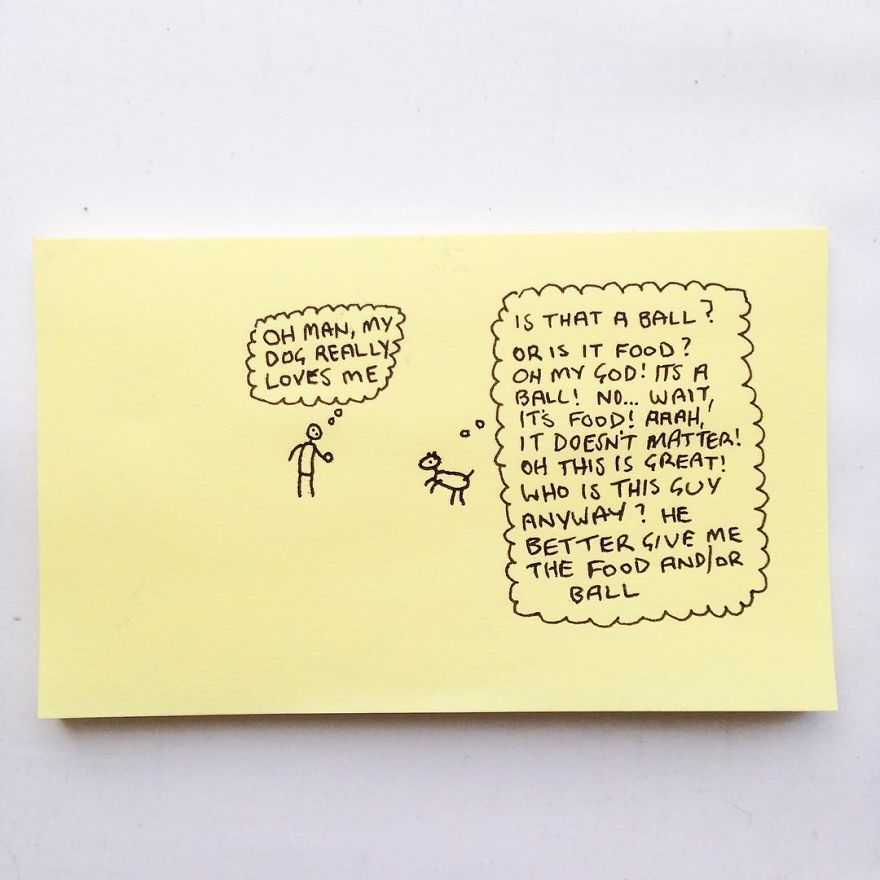 OH MAN, MY
DOG REALLY
LOVES ME
IS THAT A BALL?
OR IS IT FOOD?
OH MY GOD! ITS A
BALL! NO... WAIT,
IT'S FOOD! AAAH,
IT DOESN'T MATTER!
OH THIS IS GREAT!
WHO IS THIS GUY
ANYWAY? HE
BETTER GIVE ME
THE FOOD AND/OR
BALL